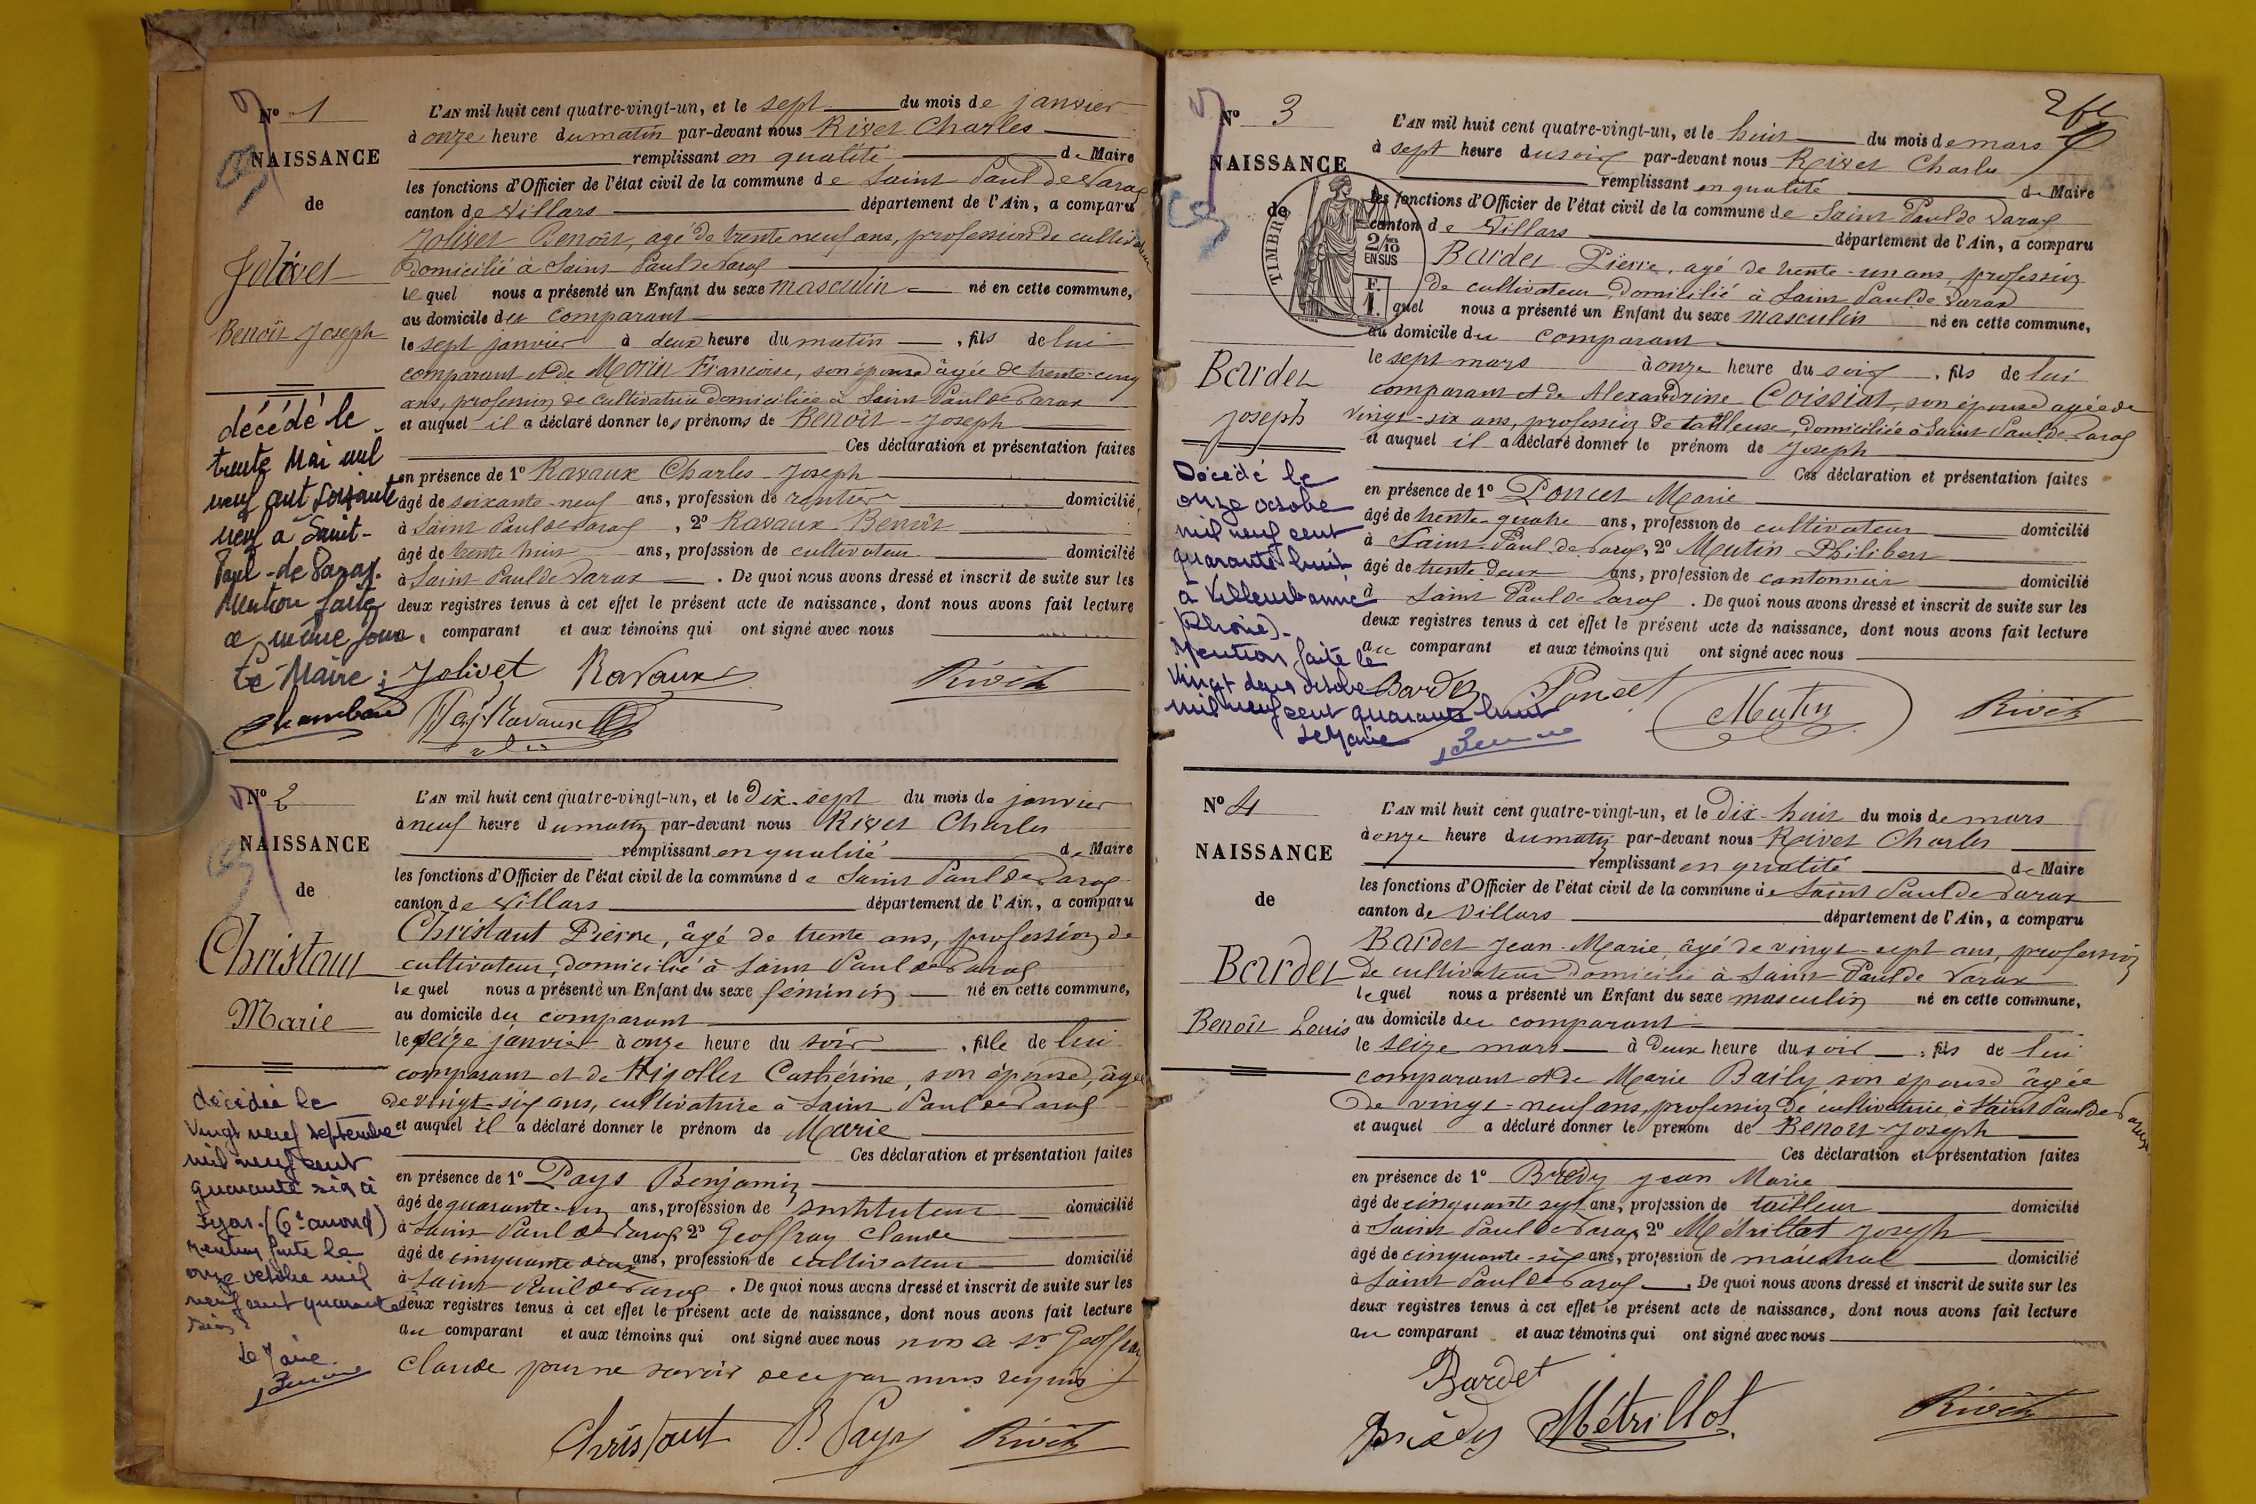 N° 1
NAISSANCE
de
Jolivet
Benoît Joseph
décédé le
trente Mai mil
neuf cent soixante
neuf à Saint-
Paul-de-Varax.
Mention faite
ce même jour.
Le Maire :
L'AN mil huit cent quatre-vingt-un, et le sept du mois de janvier
à onze heure du matin par-devant nous Rivet Charles
remplissant en qualité de Maire
les fonctions d'Officier de l'état civil de la commune de Saint Paul de Varax
canton de Villars département de l'Ain, a comparu
Jolivet Benoît, agé de trente neuf ans, profession de cultivateur
domicilié à Saint Paul de Varax
lequel nous a présenté un Enfant du sexe masculin né en cette commune,
au domicile du comparant
le sept janvier à deux heure du matin, fils de lui
comparant et de Morin Francoise, son épouse âgée de trente-cinq
ans, profession de cultivatrice domiciliée à Saint Paul de Varax
et auquel il a déclaré donner les prénoms de Benoît-Joseph
Ces déclaration et présentation faites
en présence de 1° Ravaux Charles Joseph
âgé de soixante-neuf ans, profession de rentier domicilié
à Saint Paul de Varax, 2° Ravaux Benoît
âgé de trente huit ans, profession de cultivateur domicilié
à Saint Paul de Varax. De quoi nous avons dressé et inscrit de suite sur les
deux registres tenus à cet effet le présent acte de naissance, dont nous avons fait lecture
comparant et aux témoins qui ont signé avec nous
Jolivet Ravaux Rivet
N° 2
NAISSANCE
de
Christaut
Marie
décédée le
vingt neuf septembre
mil neuf cent
quarante six à
Lyon (6e arrond)
mention faite le
onze octobre mil
neuf cent quarante
six
Le Maire
L'AN mil huit cent quatre-vingt-un, et le dix-sept du mois de janvier
à neuf heure du matin par-devant nous Rivet Charles
remplissant en qualité de Maire
les fonctions d'Officier de l'état civil de la commune de Saint Paul de Varax
canton de Villars département de l'Ain, a comparu
Christaut Pierre, âgé de trente ans, profession de
cultivateur, domicilié à Saint Paul de Varax
lequel nous a présenté un Enfant du sexe féminin né en cette commune,
au domicile du comparant
le seize janvier à onze heure du soir, fille de lui
comparant et de Rigollet Cathérine, son épouse, âgée
de vingt-six ans, cultivatrice à Saint Paul de Varax
et auquel il a déclaré donner le prénom de Marie
Ces déclaration et présentation faites
en présence de 1° Pays Benjamin
âgé de quarante-un ans, profession de instituteur domicilié
à Saint Paul de Varax, 2° Geoffray Claude
âgé de cinquante deux ans, profession de cultivateur domicilié
à Saint Paul de Varax. De quoi nous avons dressé et inscrit de suite sur les
deux registres tenus à cet effet le présent acte de naissance, dont nous avons fait lecture
au comparant et aux témoins qui ont signé avec nous non le sr Geoffray
Claude pour ne savoir de ce par nous requis
Christaut B. Pays Rivet
N° 3
NAISSANCE
de
TIMBRE
2/10 EN SUS
F. 1.
Bardet
Joseph
Décédé le
onze octobre
mil neuf cent
quarante huit
à Villeurbanne
(Rhône).
Mention faite le
vingt deux octobre
mil neuf cent quarante huit
Le Maire
L'AN mil huit cent quatre-vingt-un, et le huit du mois de mars
à sept heure du soir par-devant nous Rivet Charles
remplissant en qualité de Maire
les fonctions d'Officier de l'état civil de la commune de Saint Paul de Varax
canton de Villars département de l'Ain, a comparu
Bardet Pierre, agé de trente-un ans, profession
de cultivateur domicilié à Saint Paul de Varax
quel nous a présenté un Enfant du sexe masculin né en cette commune,
au domicile du comparant
le sept mars à onze heure du soir, fils de lui
comparant et de Alexandrine Coissiat, son épouse agée de
vingt-six ans, profession de tailleuse, domiciliée à Saint Paul de Varax
et auquel il a déclaré donner le prénom de Joseph
Ces déclaration et présentation faites
en présence de 1° Poncet Marie
âgé de trente-quatre ans, profession de cultivateur domicilié
à Saint Paul de Varax, 2° Mutin Philibert
âgé de trente deux ans, profession de cantonnier domicilié
à Saint Paul de Varax. De quoi nous avons dressé et inscrit de suite sur les
deux registres tenus à cet effet le présent acte de naissance, dont nous avons fait lecture
au comparant et aux témoins qui ont signé avec nous
Bardet Poncet Mutin Rivet
N° 4
NAISSANCE
de
Bardet
Benoît Louis
L'AN mil huit cent quatre-vingt-un, et le dix-huit du mois de mars
à onze heure du matin par-devant nous Rivet Charles
remplissant en qualité de Maire
les fonctions d'Officier de l'état civil de la commune de Saint Paul de Varax
canton de Villars département de l'Ain, a comparu
Bardet Jean-Marie, âgé de vingt-sept ans, profession
de cultivateur domicilié à Saint Paul de Varax
lequel nous a présenté un Enfant du sexe masculin né en cette commune,
au domicile du comparant
le seize mars à deux heure du soir, fils de lui
comparant et de Marie Baily son épouse âgée
de vingt-neuf ans, profession de cultivatrice à Saint Paul de Varax
et auquel a déclaré donner le prénom de Benoît-Joseph
Ces déclaration et présentation faites
en présence de 1° Brédy Jean Marie
âgé de cinquante sept ans, profession de tailleur domicilié
à Saint Paul de Varax, 2° Métrillot Joseph
âgé de cinquante-six ans, profession de maréchal domicilié
à Saint Paul de Varax. De quoi nous avons dressé et inscrit de suite sur les
deux registres tenus à cet effet le présent acte de naissance, dont nous avons fait lecture
au comparant et aux témoins qui ont signé avec nous
Bardet
Brédy Métrillot Rivet